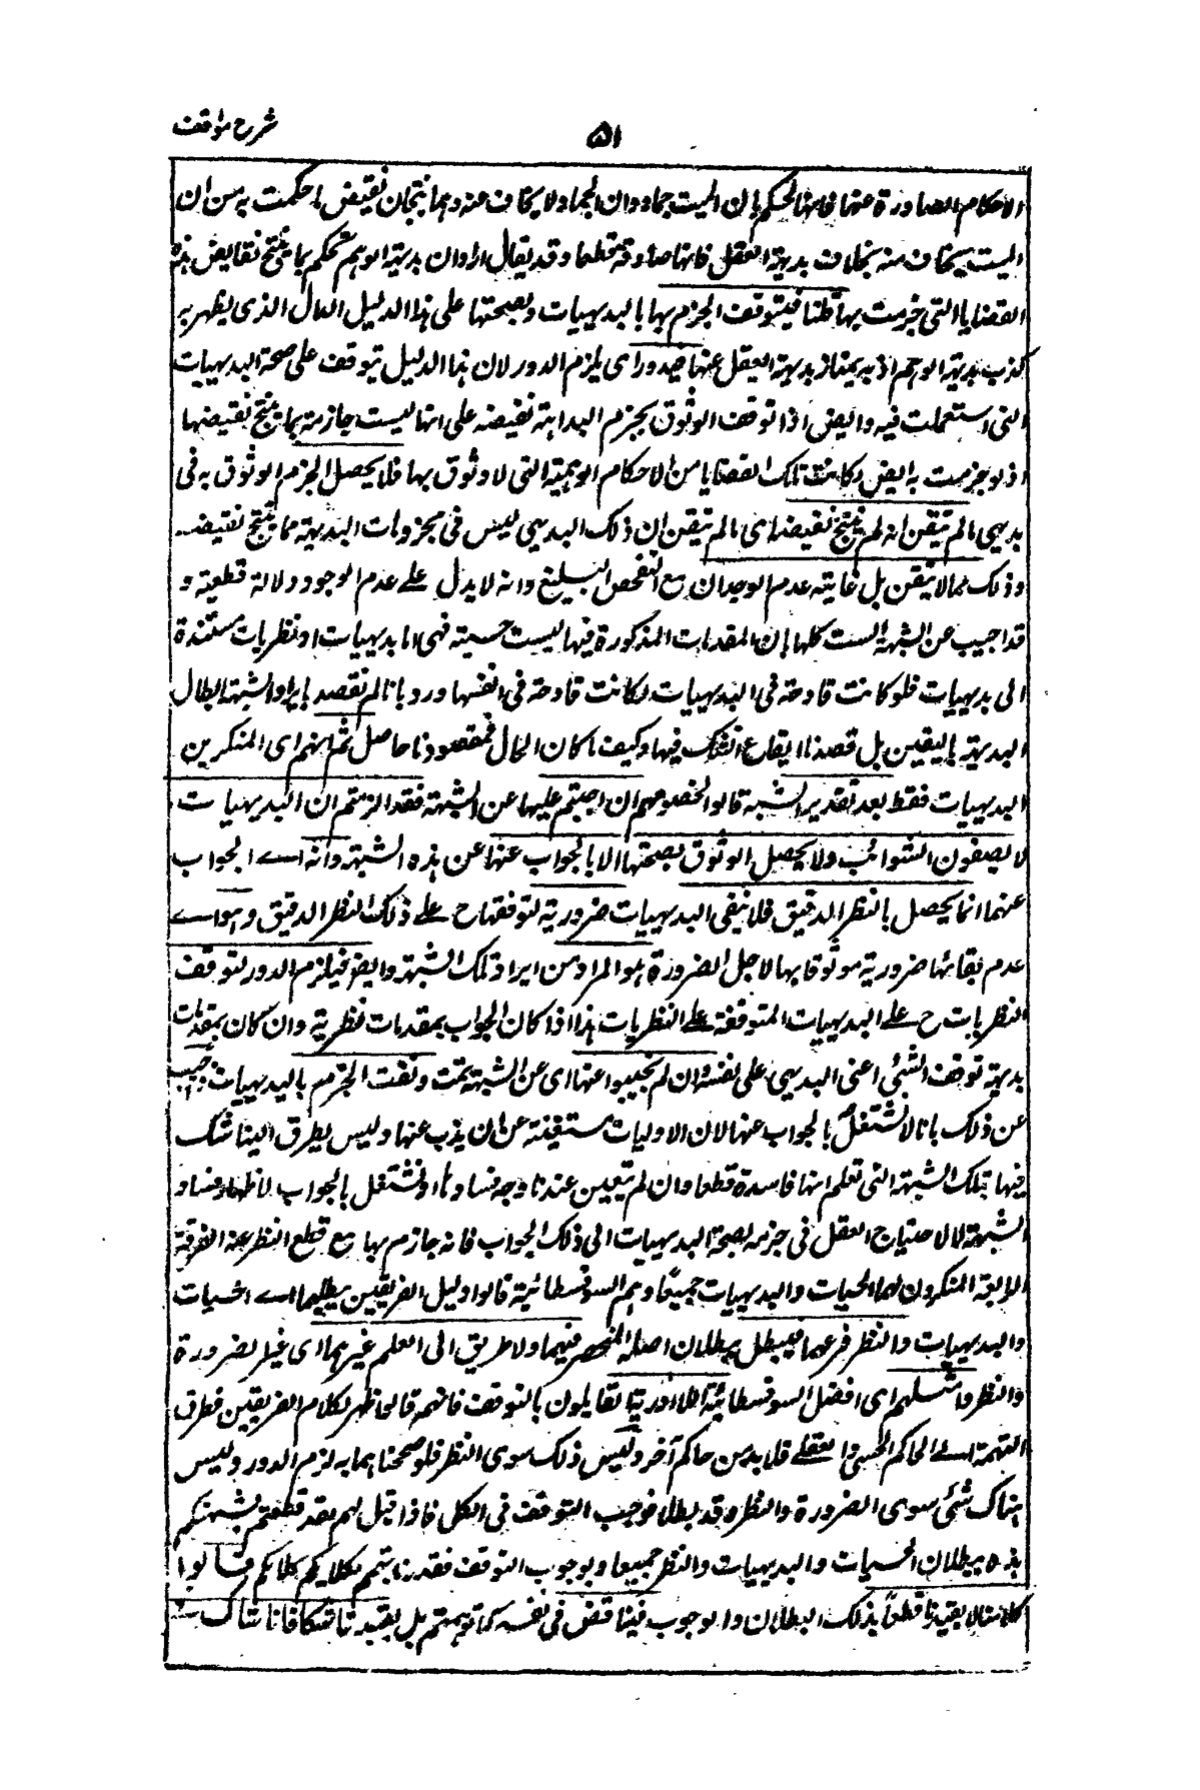 شرح مواقف
۵۱
الاحکام الصادرة عنها فانها تحکم بان المیت جماد وان الجماد لا یخاف عنه وهما ینتجان نقیض ما حکمت به من ان
المیت یخاف منه بخلاف بدیهة العقل فانها صادقة قطعا وقد یقال اراد ان بدیهة الوهم تحکم بما ینتج نقایض هذه
القضایا التی جزمت بها قلنا فیتوقف الجزم بها بالبدیهیات وبصحتها علی هذا الدلیل الدال الذی یظهر به
کذب بدیهة الوهم اذ به یمتاز بدیهة العقل عنها فیدور ای یلزم الدور لان هذا الدلیل یتوقف علی صحة البدیهیات
التی استعملت فیه وایض اذا توقف الوثوق بجزم البداهة بقضیة علی انها لیست جازمة بما ینتج نقیضها
اذ لو جزمت به ایض لکانت تلک القضایا من الاحکام الوهمیة التی لا وثوق بها فلا یحصل الجزم الوثوق به فی
بدیهی ما لم تیقن انه لم ینتج نقیضه ای ما لم تیقن ان ذلک البدیهی لیس فی مجزومات البدیهة مما ینتج نقیضه
وذلک مما لا یتیقن بل غایته عدم الوجدان مع التفحص البلیغ وانه لا یدل علی عدم الوجود دلالة قطعیة و
قد اجیب عن الشبهة الست کلها بان المقدمات المذکورة فیها لیست حسیة فهی اما بدیهیات او نظریات مستندة
الی بدیهیات فلو کانت قادحة فی البدیهیات لکانت قادحة فی انفسها ورد بانا لم نقصد بایراد الشبهة ابطال
البدیهة بالیقین بل قصدنا ایقاع الشک فیها وکیف ما کان الحال فمقصودنا حاصل ثم انهم ای المنکرین
البدیهیات فقط بعد تقدیر الشبه قالوا لخصومهم ان اجبتم علیها عن الشبهة فقد الزمتم ان البدیهیات
لا یصفون الشوائب ولا یحصل الوثوق بصحتها الا بالجواب عنها عن هذه الشبهة وانه ای الجواب
عنها انما یحصل بالنظر الدقیق فلا یبقی البدیهیات ضروریة لتوقفها ح علی ذلک النظر الدقیق وهو ای
عدم بقائها ضروریة موثوقا بها لاجل الضرورة هو المراد من ایراد تلک الشبهة وایض فیلزم الدور لتوقف
النظریات ح علی البدیهیات المتوقفة علی النظریات هذا اذا کان الجواب بمقدمات نظریة وان کان بمقدمات
بدیهیة توقف الشئ اعنی البدیهی علی نفسه وان لم تجیبوا عنها ای عن الشبهة تمت ونفت الجزم بالبدیهیات واجیب
عن ذلک بانا لا نشتغل بالجواب عنها لان الاولیات مستغنیة عن ان یذب عنها ولیس یطرق الینا شک
فیها بتلک الشبهة التی نعلم انها فاسدة قطعا وان لم یتعین عندنا وجه فسادها او نشتغل بالجواب لاظهار فساد
الشبهة لا لاحتیاج العقل فی جزمه بصحة البدیهیات الی ذلک الجواب فانه جازم بها مع قطع النظر عنه الفرقة
الرابعة المنکرون لهما الحسیات والبدیهیات جمیعا وهم السوفسطائیة قالوا دلیل الفریقین یبطلهما ای الحسیات
والبدیهیات والنظر فرعهما فیبطل ببطلان اصله المنحصر فیهما ولا طریق الی العلم غیرهما ای غیر الضرورة
والنظر وامثلهم ای افضل السوفسطائیة اللاادریة القایلون بالتوقف فانهم قالوا ظهر بکلام الفریقین فطرق
التهمة الی الحاکم الحسی والعقلی فلا بد من حاکم آخر ولیس ذلک سوی النظر فلو صححناهما به لزم الدور ولیس
هناک شئ سوی الضرورة والنظر وقد بطلا فوجب التوقف فی الکل فاذا قیل لهم لقد قطعتم بشبهتکم
هذه ببطلان الحسیات والبدیهیات والنظر جمیعا وبوجوب التوقف فقد ناقضتم بکلامکم کلامکم قالوا
کلامنا لا یفیدنا قطعا بذلک البطلان والوجوب فیناقض فی نفسه کما توهمتم بل یفیدنا شکا فانا شاک